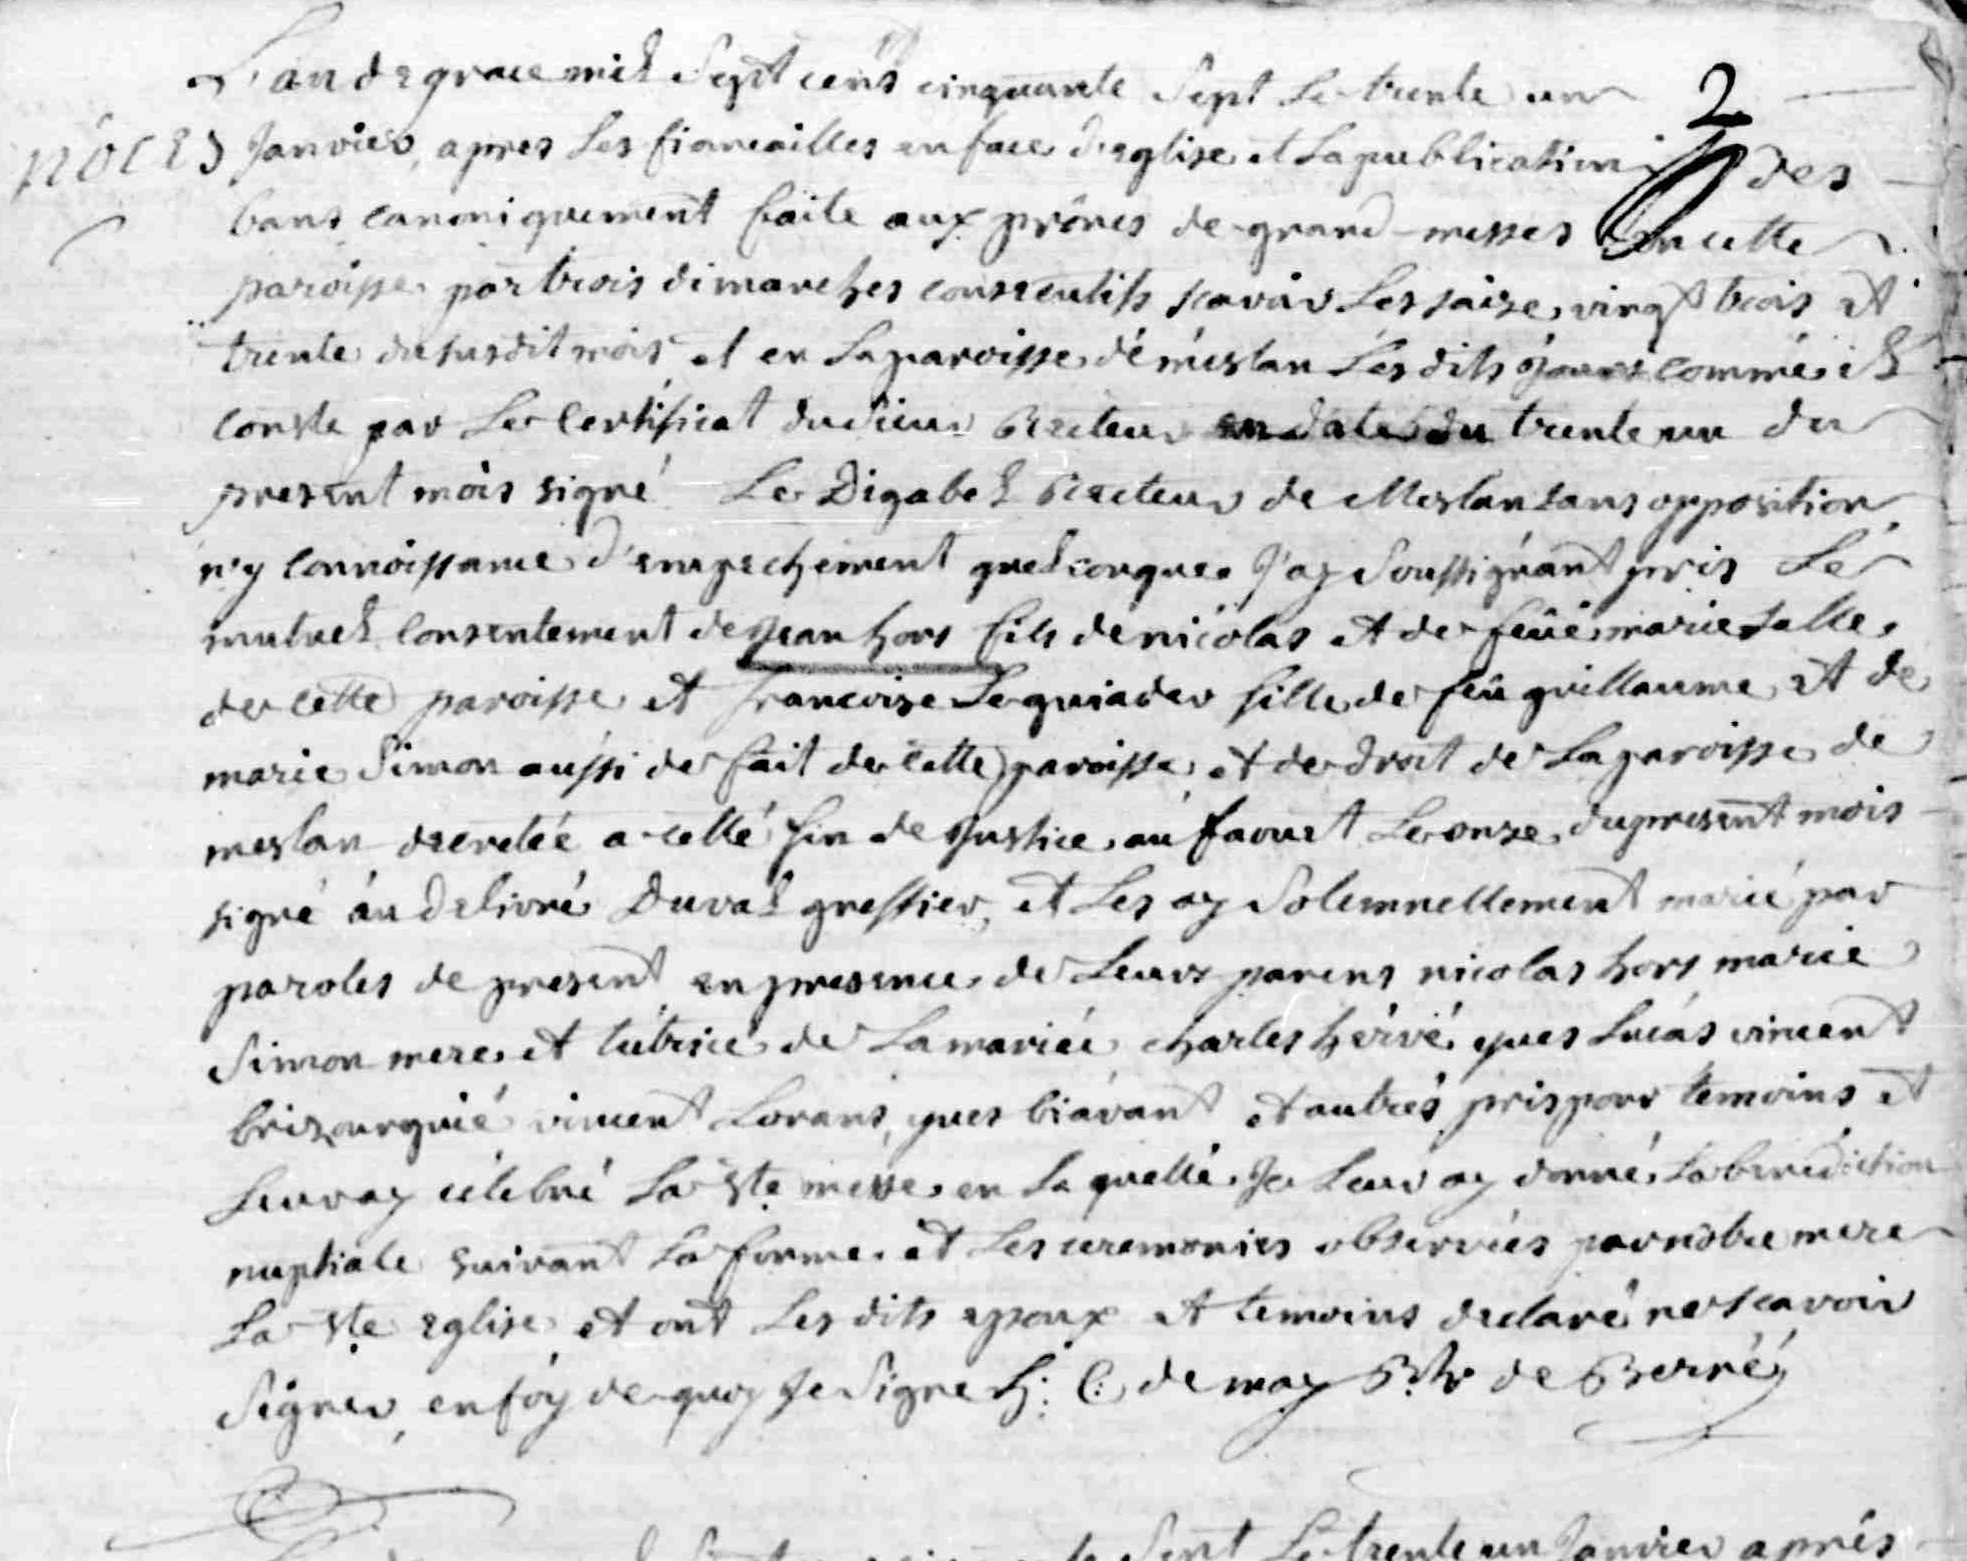 L'an de grace mil Sept cens cinquante Sept Le trente un
2
nóces Janvier, apres Les fiancailles en face d'eglise et La publication des
bans canoniquement faite aux prônes de grand messes en cette
paroisse par trois dimanches consecutifs scavoir Les saize, vingt trois et
trente du susdit mois et en La paroisse dé méslan Lés dits jours commé il
conste par Le Certificat du Sieur Recteur en date du trente un du
present mois signé Le Digabel Recteur de Meslan sans opposition
n'y connoissance d'empechement quelconque J'ay Soussignant pris Le
mutuel Consentement de Jean hors fils de nicolas et de feüe marie
de cette paroisse et francoise Le guiader fille de feu guillaume et de
marie Simon aussi de fait de cette paroisse et de droit de La paroisse de
meslan decretée a cette fin de Justice, au faouet Le onze du present mois
signé au delivré Duval greffier, et Les ay Solemnellement marié par
paroles de present en presence de Leurs parens nicolas hors marie
Simon mere et tutrice de La mariée charles hérvé yves Lucas vincent
vincent Lorans, yves biávant et autrés pris pour temoins et
Leur ay célebré La Ste messe en La quelle Je Leur ay donné La benediction
nuptiale suivant La forme et Les ceremonies observées par notre mere
La Ste eglise et ont Les dits epoux et temoins declaré ne scavoir
Signer en foy de quoy Je Signe h: C: de may Rtr de Berné
Sept Le trente un Janvier aprés